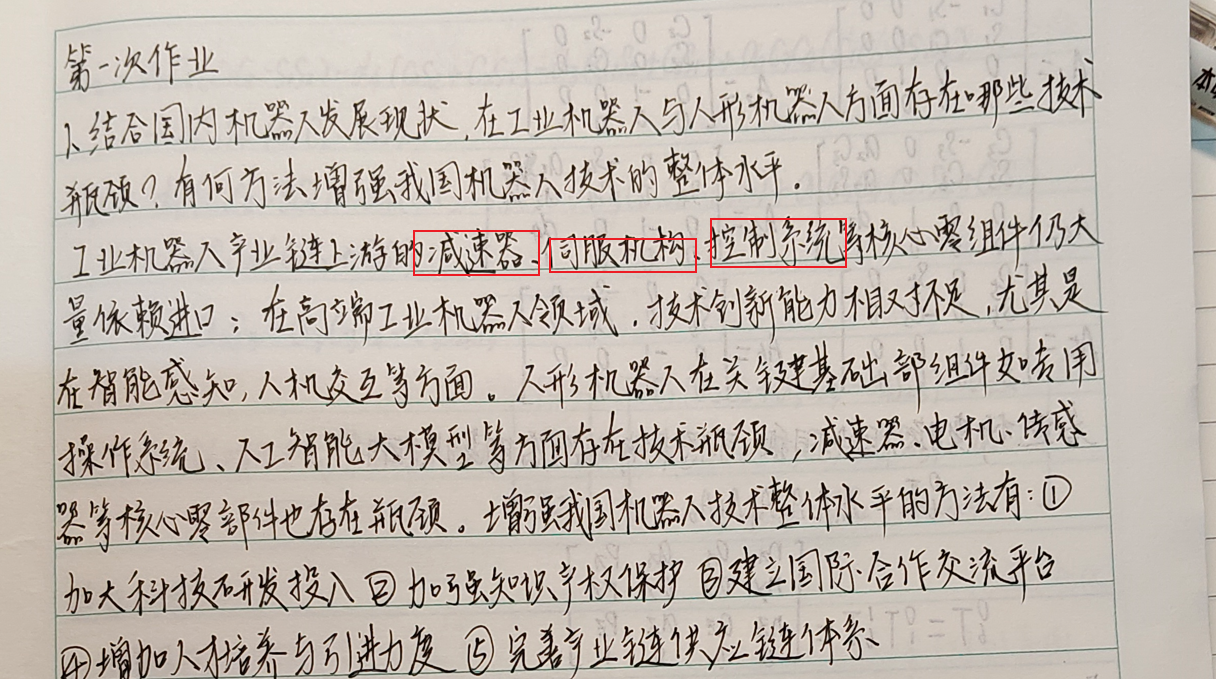 第一次作业
1、结合国内机器人发展现状,在工业机器人与人形机器人方面存在哪些技术
瓶颈?有何方法增强我国机器人技术的整体水平.
工业机器人产业链上游的减速器、伺服机构、控制系统等核心零组件仍大
量依赖进口;在高端工业机器人领域,技术创新能力相对不足,尤其是
在智能感知,人机交互等方面。人形机器人在关键基础部组件如专用
操作系统、人工智能大模型等方面存在技术瓶颈,减速器、电机、传感
器等核心零部件也存在瓶颈。增强我国机器人技术整体水平的方法有:①
加大科技研发投入②加强知识产权保护③建立国际合作交流平台
④增加人才培养与引进力度⑤完善产业链供应链体系、